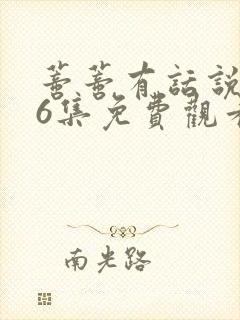 蕾蕾有話說
6集免費觀看
南光路